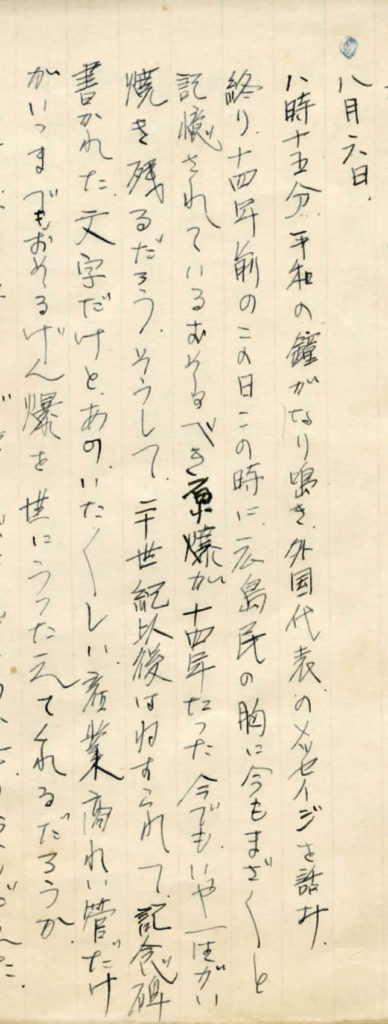 八月六日.
八時十五分.平和の鐘がなり鳴き.外国代表のメッセイジを話け.
終り.十四年前のこの日この時に.広島民の胸に今もまざ〱と
記憶されているむそるべき原爆が十四年たった今でもいや一生がい
焼き残るだろう.そうして二十世紀以後はわすられて.記念碑
書かれた文字だけと.あのいた〱しい産業商れい管だけ
がいつまでもおそるげん爆を世にうったえてくれるだろうか.